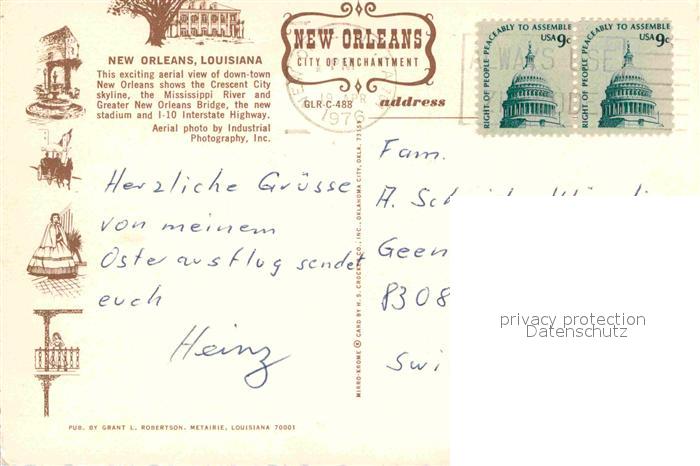 NEW ORLEANS, LOUISIANA
This exciting aerial view of down-town
New Orleans shows the Crescent City
skyline, the Mississippi River and
Greater New Orleans Bridge, the new
stadium and I-10 Interstate Highway.
Aerial photo by Industrial
Photography, Inc.
NEW ORLEANS
CITY OF ENCHANTMENT
GLR-C-488
address
19 APR
1976
RIGHT OF PEOPLE PEACEABLY TO ASSEMBLE
USA 9c
RIGHT OF PEOPLE PEACEABLY TO ASSEMBLE
USA 9c
ALWAYS USE
Herzliche Grüsse
von meinem
Osterausflug sendet
euch
Heinz
MIRRO-KROME ® CARD BY H. S. CROCKER CO., INC., OKLAHOMA CITY, OKLA. 73155
Fam.
A.
Geen
8308
Swi
privacy protection
Datenschutz
PUB. BY GRANT L. ROBERTSON. METAIRIE, LOUISIANA 70001